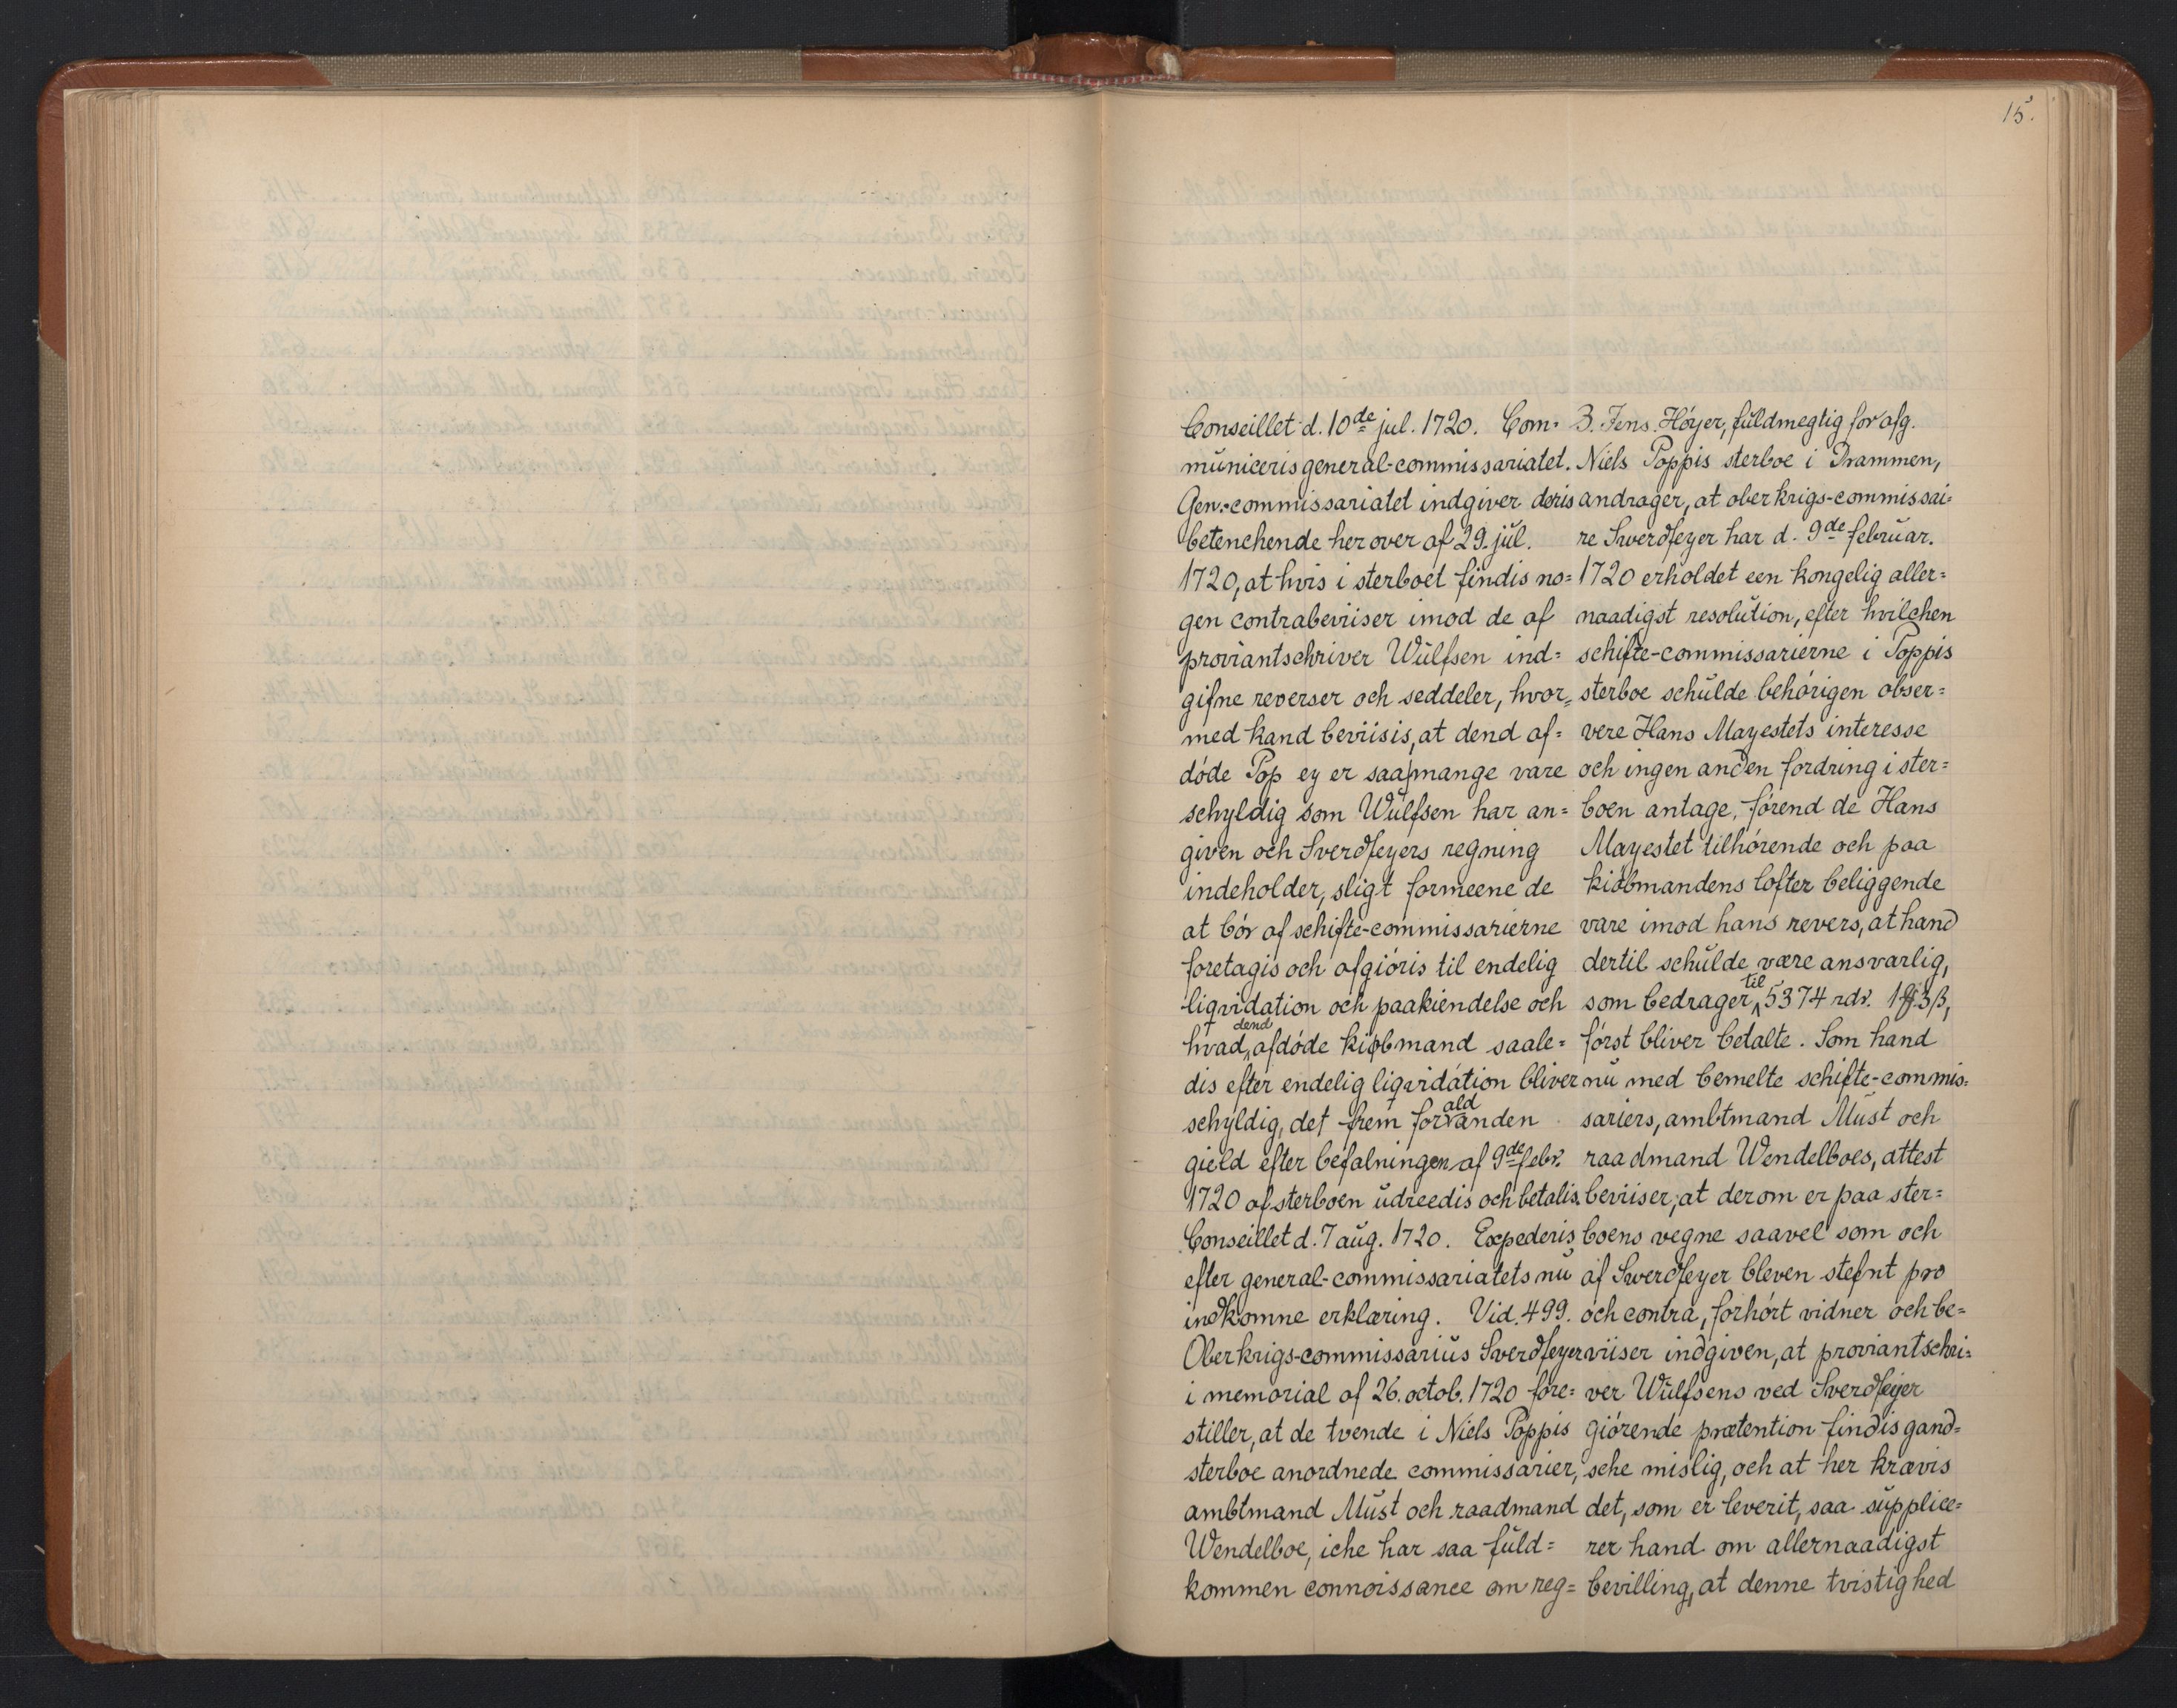 15.
Conseillet d. 10de jul. 1720. Com=
municeris general-commissariatet.
Gen.-commissariatet indgiver deris
betenchende herover af 29. jul.
1720, at hvis i sterboet findis no=
gen contrabeviiser imod de af
proviantschriver Wulfsen ind=
gifne reverser och seddeler, hvor=
med kand beviisis, at dend af=
døde Pop ey er saa mange vare
schyldig som Wulfsen har an=
given och Sverdfeyers regning
indeholder, sligt formeene de
at bør af schifte-commissarierne
foretagis och afgiøris til endelig
liqvidation och paakiendelse och
hvad dend afdøde kiøbmand saale=
dis efter endelig liqvidation bliver
schyldig, det frem for ald anden
gield efter befalningen af 9de febr.
1720 af sterboen udreedis och betalis.
Conseillet d. 7 aug. 1720. Expederis
efter general-commissariatets nu
indkomne erklæring. Vid. 499.
Oberkrigs-commissarius Sverdfeyer
i memorial af 26. octob. 1720 fore=
stiller, at de tvende i Niels Poppis
sterboe anordnede commissarier,
ambtmand Must och raadmand
Wendelboe, iche har saa fuld=
kommen connoissance om reg=
3. Jens Høyer, fuldmegtig for afg.
Niels Poppis sterboe i Drammen,
andrager, at ober krigs-commissai=
re Swerdfeyer har d. 9de februar.
1720 erholdet een kongelig aller=
naadigst resolution, efter hvilchen
schifte-commissarierne i Poppis
sterboe schulde behørigen obser=
vere Hans Mayestets interesse
och ingen anden fordring i ster=
boen antage, førend de Hans
Mayestet tilhørende och paa
kiøbmandens lofter beliggende
vare imod hans revers, at hand
dertil schulde være ansvarlig,
som bedrager til 5374 rdr. 1 ℔ 3 β,
først bliver betalte. Som hand
nu med bemelte schifte-commis=
sariers, ambtmand Must och
raadmand Wendelboes, attest
beviiser, at derom er paa ster=
boens vegne saavel som och
af Swerdfeyer bleven stefnt pro
och contra, forhørt vidner och be=
viiser indgiven, at proviantschri=
ver Wulfsens ved Sverdfeyer
giørende prætention findis gand=
sche mislig, och at her krævis
det, som er leverit, saa supplice=
rer hand om allernaadigst
bevilling, at denne tvistighed